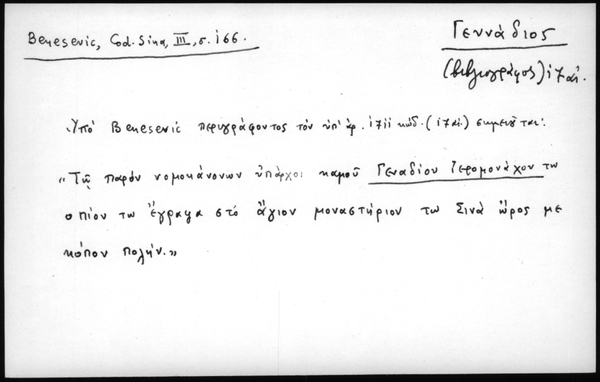 Benesevic, Cod. Sina, III, σ. 166.
Γεννάδιος
(βιβλιογράφος) 17 αἰ.
Ὑπό Benesevic περιγράφοντος τόν ὑπ' ἀρ. 1711 κώδ. (17 αἰ.) σημειοῦται:
"Τῶ παρόν νομοκάνονων ὑπάρχοι καμοῦ Γεναδίου Ἱερομονάχον τω
οπίον τω ἔγραψα στό ἅγιον μοναστήριον τω Σινᾶ ὤρος με
κόπον πολήν."